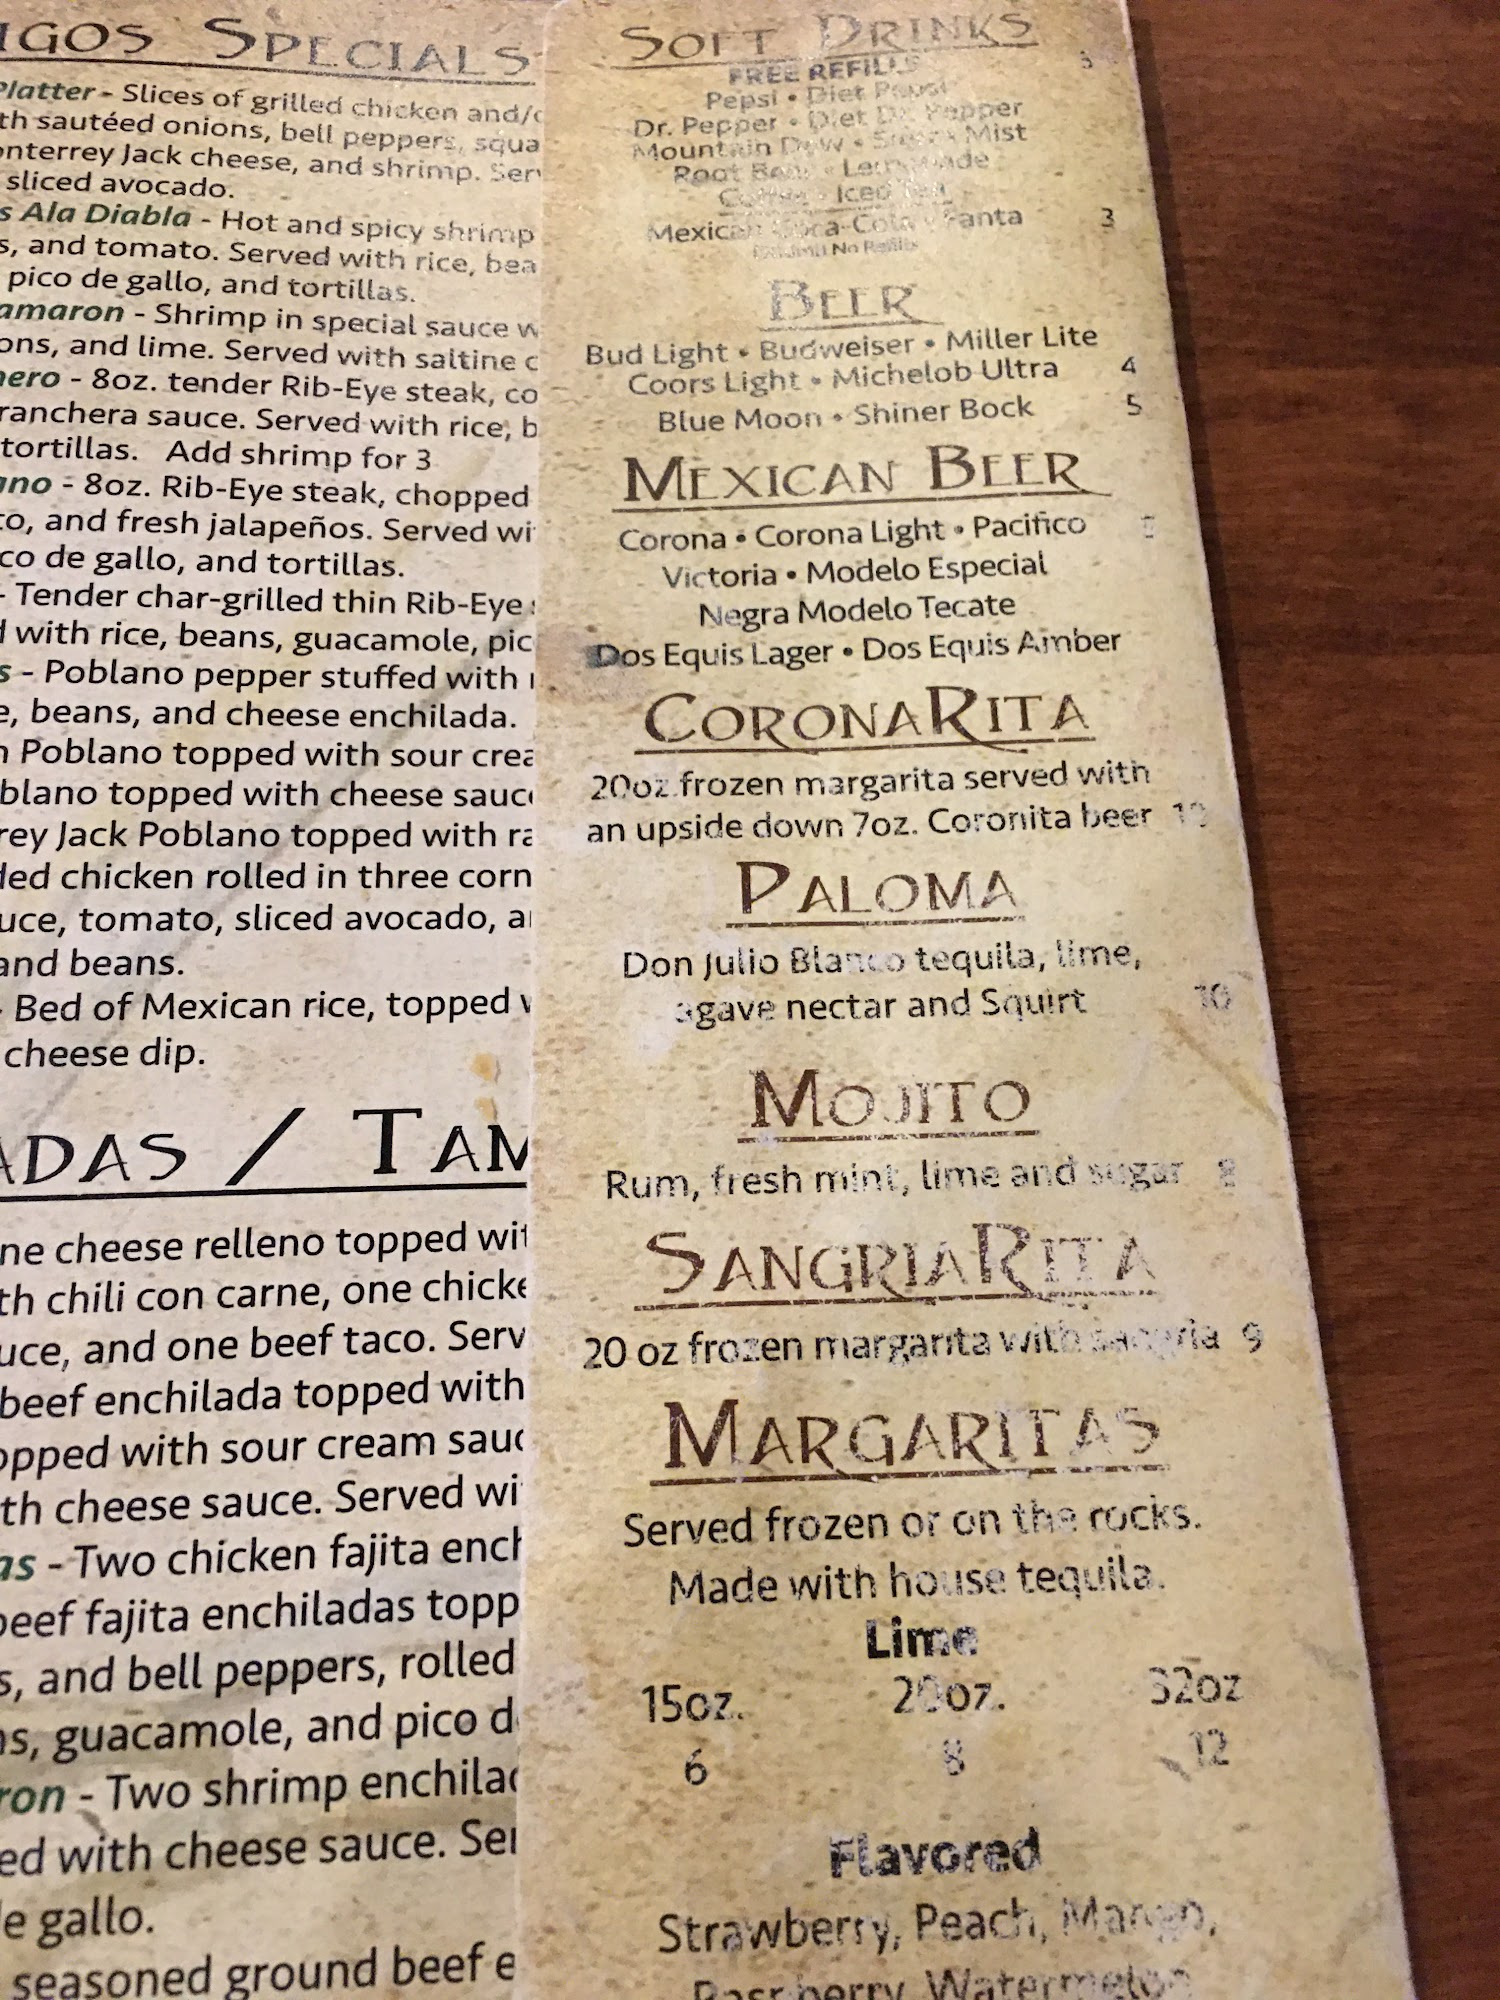 IGOS SPECIALS
Platter - Slices of grilled chicken and/
th sautéed onions, bell peppers, squa
onterrey Jack cheese, and shrimp. Ser
sliced avocado.
s Ala Diabla - Hot and spicy shrimp
s, and tomato. Served with rice, bea
pico de gallo, and tortillas.
amaron - Shrimp in special sauce w
ons, and lime. Served with saltine c
nero - 8oz. tender Rib-Eye steak, co
ranchera sauce. Served with rice, b
tortillas. Add shrimp for 3
ano - 8oz. Rib-Eye steak, chopped
to, and fresh jalapeños. Served wi
co de gallo, and tortillas.
- Tender char-grilled thin Rib-Eye
d with rice, beans, guacamole, pic
s - Poblano pepper stuffed with
e, beans, and cheese enchilada.
n Poblano topped with sour crea
blano topped with cheese sauc
rey Jack Poblano topped with ra
ded chicken rolled in three corn
uce, tomato, sliced avocado, a
and beans.
- Bed of Mexican rice, topped
cheese dip.
ADAS / TAM
ne cheese relleno topped wit
th chili con carne, one chicke
uce, and one beef taco. Serv
beef enchilada topped with
opped with sour cream sauc
th cheese sauce. Served wi
as - Two chicken fajita ench
beef fajita enchiladas topp
s, and bell peppers, rolled
ns, guacamole, and pico d
ron - Two shrimp enchilad
ed with cheese sauce. Ser
de gallo.
seasoned ground beef e
SOFT DRINKS
FREE REFILLS 3
Pepsi • Diet Pepsi
Dr. Pepper • Diet Dr. Pepper
Mountain Dew • Mist
Root Beer • Lemonade
Coffee • Iced Tea
Mexican Coca-Cola • Fanta 3
No Refills
BEER
Bud Light • Budweiser • Miller Lite
Coors Light • Michelob Ultra 4
Blue Moon • Shiner Bock 5
MEXICAN BEER
Corona • Corona Light • Pacifico
Victoria • Modelo Especial
Negra Modelo Tecate
Dos Equis Lager • Dos Equis Amber
CORONARITA
20oz frozen margarita served with
an upside down 7oz. Coronita beer
PALOMA
Don Julio Blanco tequila, lime,
agave nectar and Squirt 10
MOJITO
Rum, fresh mint, lime and sugar 8
SANGRIARITA
20 oz frozen margarita with sangria 9
MARGARITAS
Served frozen or on the rocks.
Made with house tequila.
Lime
15oz. 20oz. 32oz
6 8 12
Flavored
Strawberry, Peach, Mango,
Raspberry, Watermelon